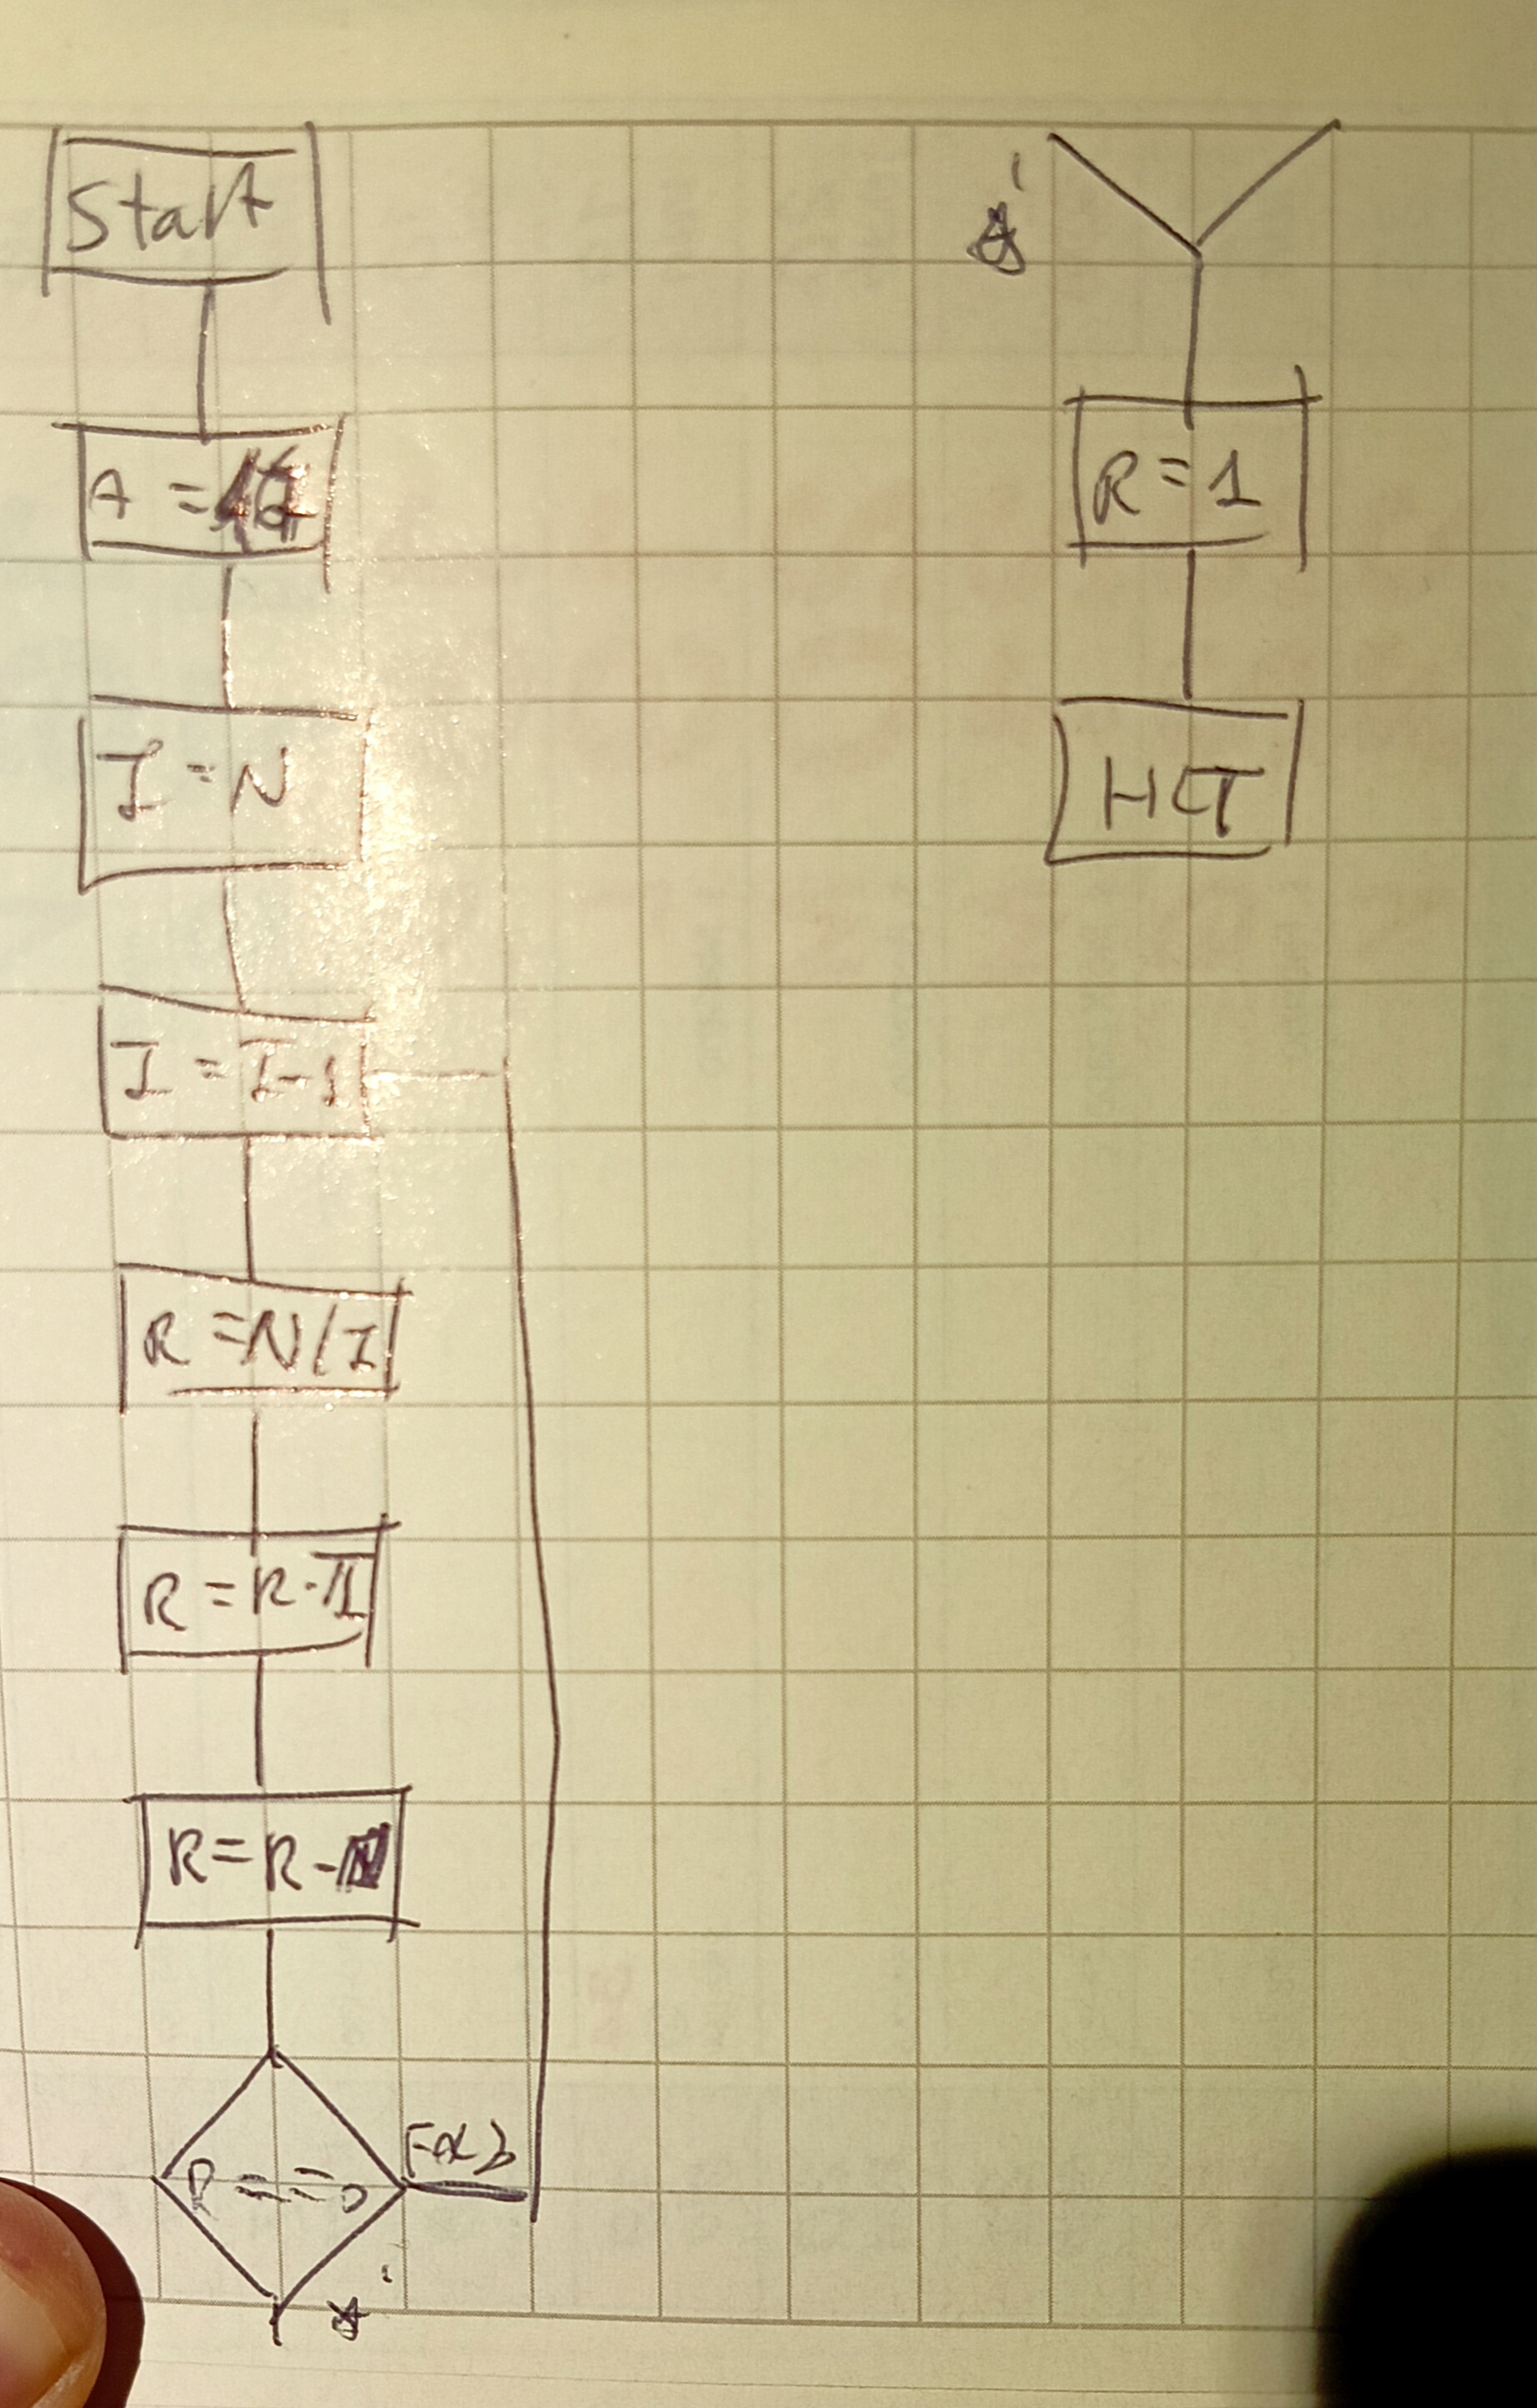 Start
A =
I = N
I = I-1
R = N/I
R = R · I
R = R -
R == 0
R = 1
HLT